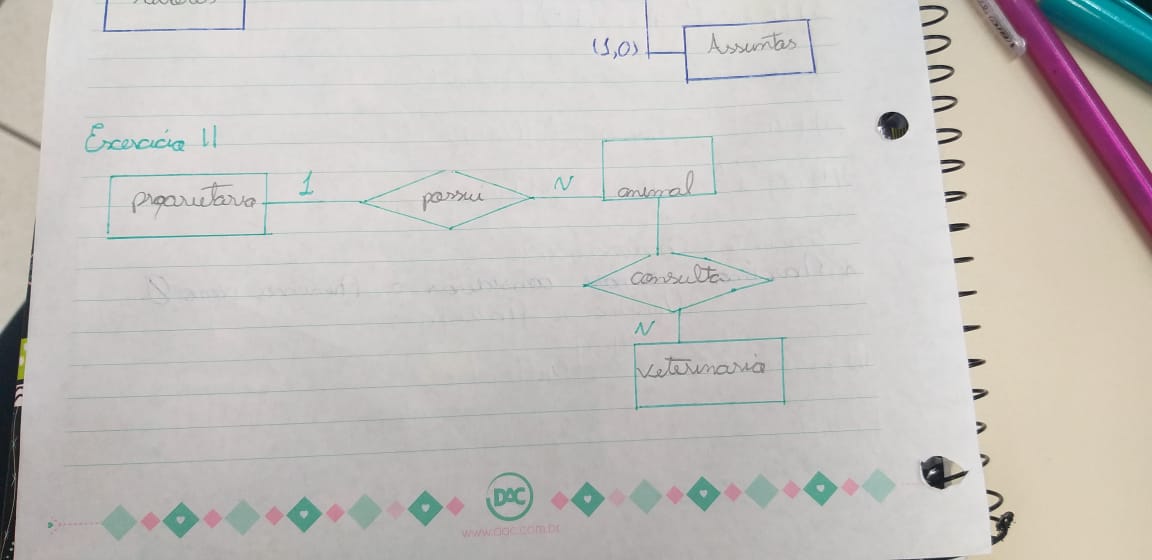 (1,0)
Assuntos
Exercício 11
proprietario
1
possui
N
animal
consulta
N
veterinario
DAC
www.dac.com.br